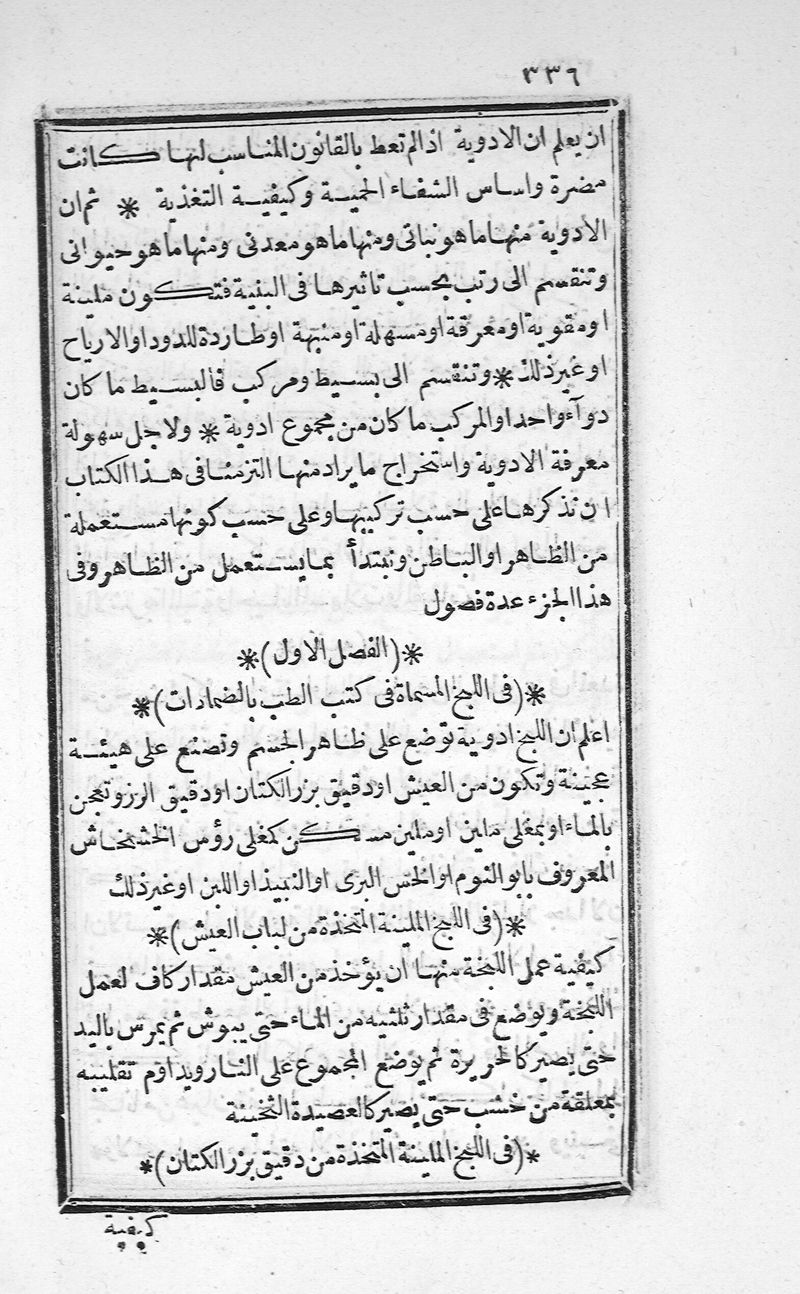 ٣٣٦
ان يعلم ان الادوية اذالم تعط بالقانون المناسب لها كانت
مضرة واساس الشفاء الحمية وكيفية التغذية * ثم ان
الادوية منها ما هو نباتى ومنها ما هو معدنى ومنها ما هو حيوانى
وتنقسم الى رتب بحسب تاثيرها فى البنية فتكون ملينة
او مقوية او معرقة او مسهلة او منبهة او طاردة للدود او الارياح
او غير ذلك * وتنقسم الى بسيط ومركب فالبسيط ما كان
دوآء واحد او المركب ما كان من مجموع ادوية * ولاجل سهولة
معرفة الادوية واستخراج ما يراد منها التزمنا فى هذا الكتاب
ان نذكرها على حسب تركيبها وعلى حسب كونها مستعملة
من الظاهر او الباطن ونبتدأ بما يستعمل من الظاهر وفى
هذا الجزء عدة فصول
*(الفصل الاول)*
*(فى اللبخ المسماة فى كتب الطب بالضمادات)*
اعلم ان اللبخ ادوية توضع على ظاهر الجسم وتصنع على هيئة
عجينة وتكون من العيش او دقيق بزر الكتان او دقيق الرز وتعجن
بالماء او بمغلى ملين او ملين مسكن كمغلى رؤس الخشخاش
المعروف بابو النوم او الخس البرى او النبيذ او اللبن او غير ذلك
*(فى اللبخ الملينة المتخذة من لباب العيش)*
كيفية عمل اللبخة منها ان يؤخذ من العيش مقدار كاف لعمل
اللبخة ويوضع فى مقدار ثلثيه من الماء حتى يبوش ثم يمرس باليد
حتى يصير كالحريرة ثم يوضع المجموع على النار ويداوم تقليبه
بمعلقة من خشب حتى يصير كالعصيدة الثخينة
*(فى اللبخ الملينة المتخذة من دقيق بزر الكتان)*
كيفية